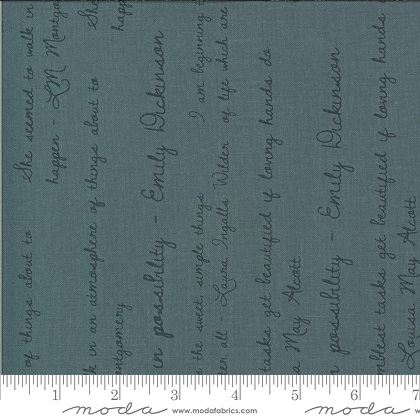 of things about to She seemed to walk in
happen - LM Montgo
k in an atmosphere of things about to She
ontgomery happ
in possibility - Emily Dickinson
e the sweet, simple things I am beginning t
er all - Laura Ingalls Wilder of life which are
tasks get beautified if loving hands do
a May Alcott
possibility - Emily Dickinson
mblest tasks get beautified if loving hands
Louisa May Alcott
1 2 3 4 5 6 7
moda www.modafabrics.com moda